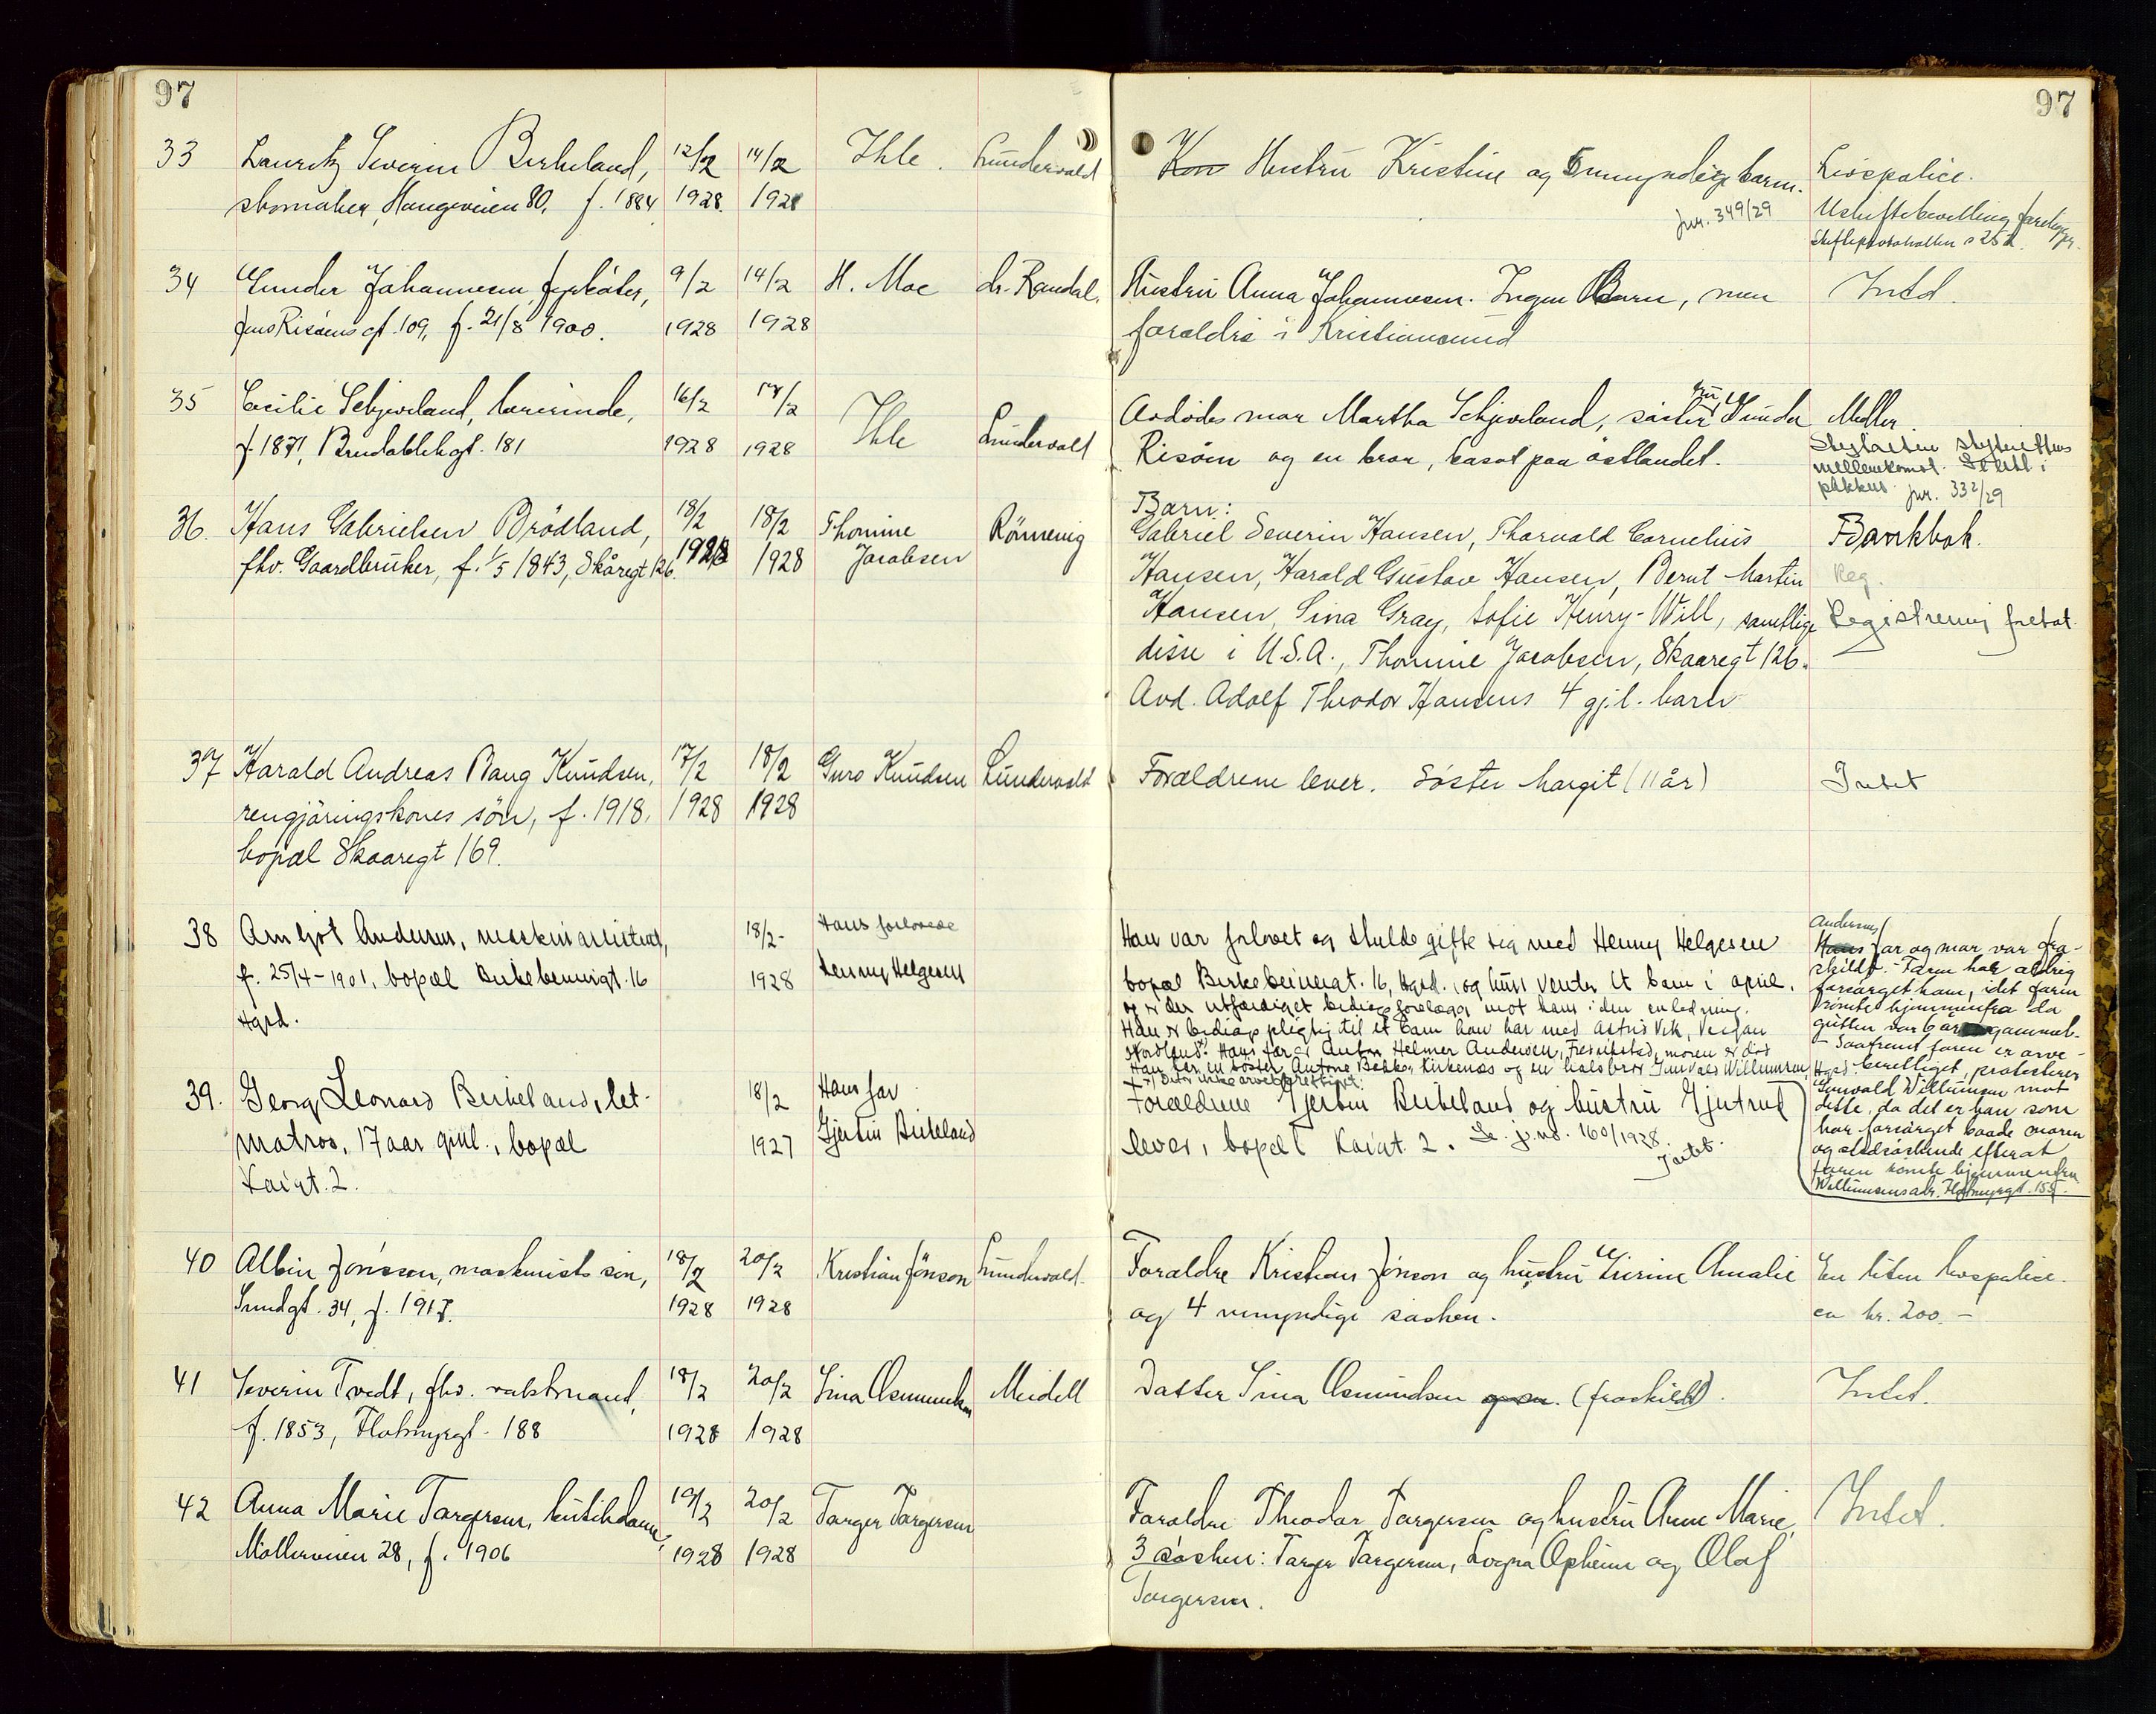 97
97
33 Lauritz Severin Birkeland, 12/2 14/2 Ihle. Lundervold Kon Hustru Kristine og 5 umyndige barn. Livspolice.
skomaker, Haugeveien 80, f. 1884 1928. 1928 jnr. 349/29 Uskiftebevilling foreligger.
Skifteprotokollen s 252.
34 Gunder Johannesen, fyrbøter, 9/2 14/2 H. Moe dr. Randal. Hustru Anna Johannesen. Ingen Barn, men Intet.
Jens Risøens gt. 109, f. 21/8 1900. 1928 1928 forældre i Kristiansund
35 Cecilie Schjeveland, lærerinde, 16/2 17/2 Ihle Lundervold Avdødes mor Martha Schjeveland, søster fru Gunda Møbler.
f. 1871, Breidablikgt. 181 1928 1928 Risøen og en bror, bosat paa østlandet. mellemkomst. i
pakkus. jnr. 332/29
36. Hans Gabrielsen Brödland, 18/2 18/2 Thomine Rönnevig Barn:
Gabriel Severin Hansen, Thorvald Cornelius Bankbok.
fhv. Gaardbruker, f. 1/5 1843, Skåregt 126. 1928 1928 Jacobsen Hansen, Harald Gustav Hansen, Bernt Martin Reg.
Hansen, Sina Gray, Sofie Henry-Will, samtlige Registrering foretat.
disse i U.S.A., Thomine Jacobsen, Skaaregt 126.
Avd. Adolf Theodor Hansens 4 gjl. barn
37 Harald Andreas Bang Knudsen, 17/2 18/2 Guro Knudsen Lundervold Forældrene lever. Söster Margit (11 år) Intet
rengjöringskones sön, f. 1918, 1928 1928
bopæl Skaaregt 169.
38 Arnljot Andersen, maskinassistent, 18/2- Hans forlovede Han var forlovet og skulde gifte sig med Henny Helgesen
f. 25/4-1901, bopæl Birkebeinergt. 16 1928 Henny Helgesen bopæl Birkebeinergt. 16, Hgsd., og hun venter et barn i april.
Hgsd. og er der utfærdiget bidragsforelæg mot ham i den anledning.
Han er bidragspligtig til et barn han har med Astrid Vik,
Hans far er Anton Helmer Andersen, Fredrikstad, moren er död
Han har en söster Antone Bekker, Kirkenæs og en halvbror Gunvald Willumsen, Hgsd.
Andersens
Hans far og mor var fra-
skildt. Faren har aldrig
forsørget ham, idet faren
rømte hjemmenfra da
gutten var 6 år gammel.
- Saafremt faren er arve-
berettiget, protesterer
Gunvald Willumsen mot
dette, da det er han som
har forsørget baade moren
og stedsøskende efterat
faren rømte hjemmenfra
Willumsens adr. Flotmyrgt. 155.
39. Georg Leonard Birkeland, let- 18/2 Hans far Forældrene Gjertin Birkeland og hustru Gjertrud
matros, 17 aar gml., bopæl 1927 Gjertin Birkeland lever, bopæl Kaigt. 2. Se j.nr. 160/1928. Intet.
Kaigt. 2.
40 Albin Jönsson, maskinists søn, 18/2 20/2 Kristian Jönson Lundervold. Forældre Kristian Jönson og hustru Serine Amalie En liten livspolice.
Sundgt. 34, f. 1917. 1928 1928 og 4 umyndige søsken. ca kr. 200.-
41 Severin Tvedt, fhv. vaktmand, 18/2 20/2 Sina Osmundsen Meidell Datter Sina Osmundsen og en. (fraskildt). Intet.
f. 1853, Flotmyrgt. 188 1928 1928
42 Anna Marie Torgersen, butikdame, 19/2 20/2 Torger Torgersen Forældre Theodor Torgersen og hustru Anne Marie, Intet.
Møllerveien 28, f. 1906 1928 1928 3 søsken: Torger Torgersen, Lovna Opheim og Olaf
Torgersen.